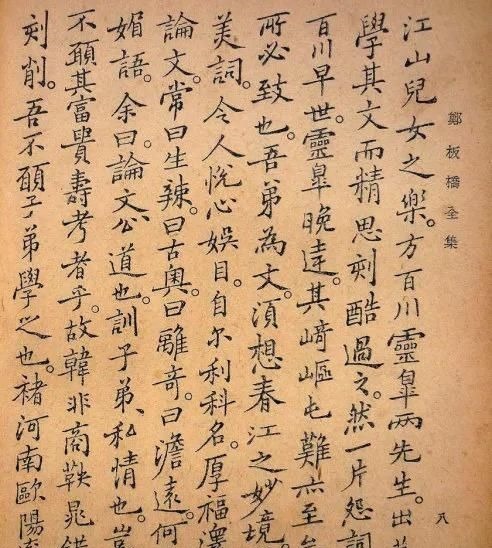 鄭板橋全集
八
江山兒女之樂。方百川靈皐兩先生。出
學其文而精思刻酷過之。然一片怨詞
百川早世。靈皐晚達。其崎嶇屯難亦至
所必致也。吾弟為文。須想春江之妙境。
美詞。令人悅心娛目。自尔利科名。厚福澤
論文。常曰生辣。曰古奧。曰離奇。曰澹遠。何
媚語。余曰。論文公道也。訓子弟。私情也。豈
不願其富貴壽考者乎。故韓非商鞅晁錯
刻削。吾不願子弟學之也。褚河南歐陽